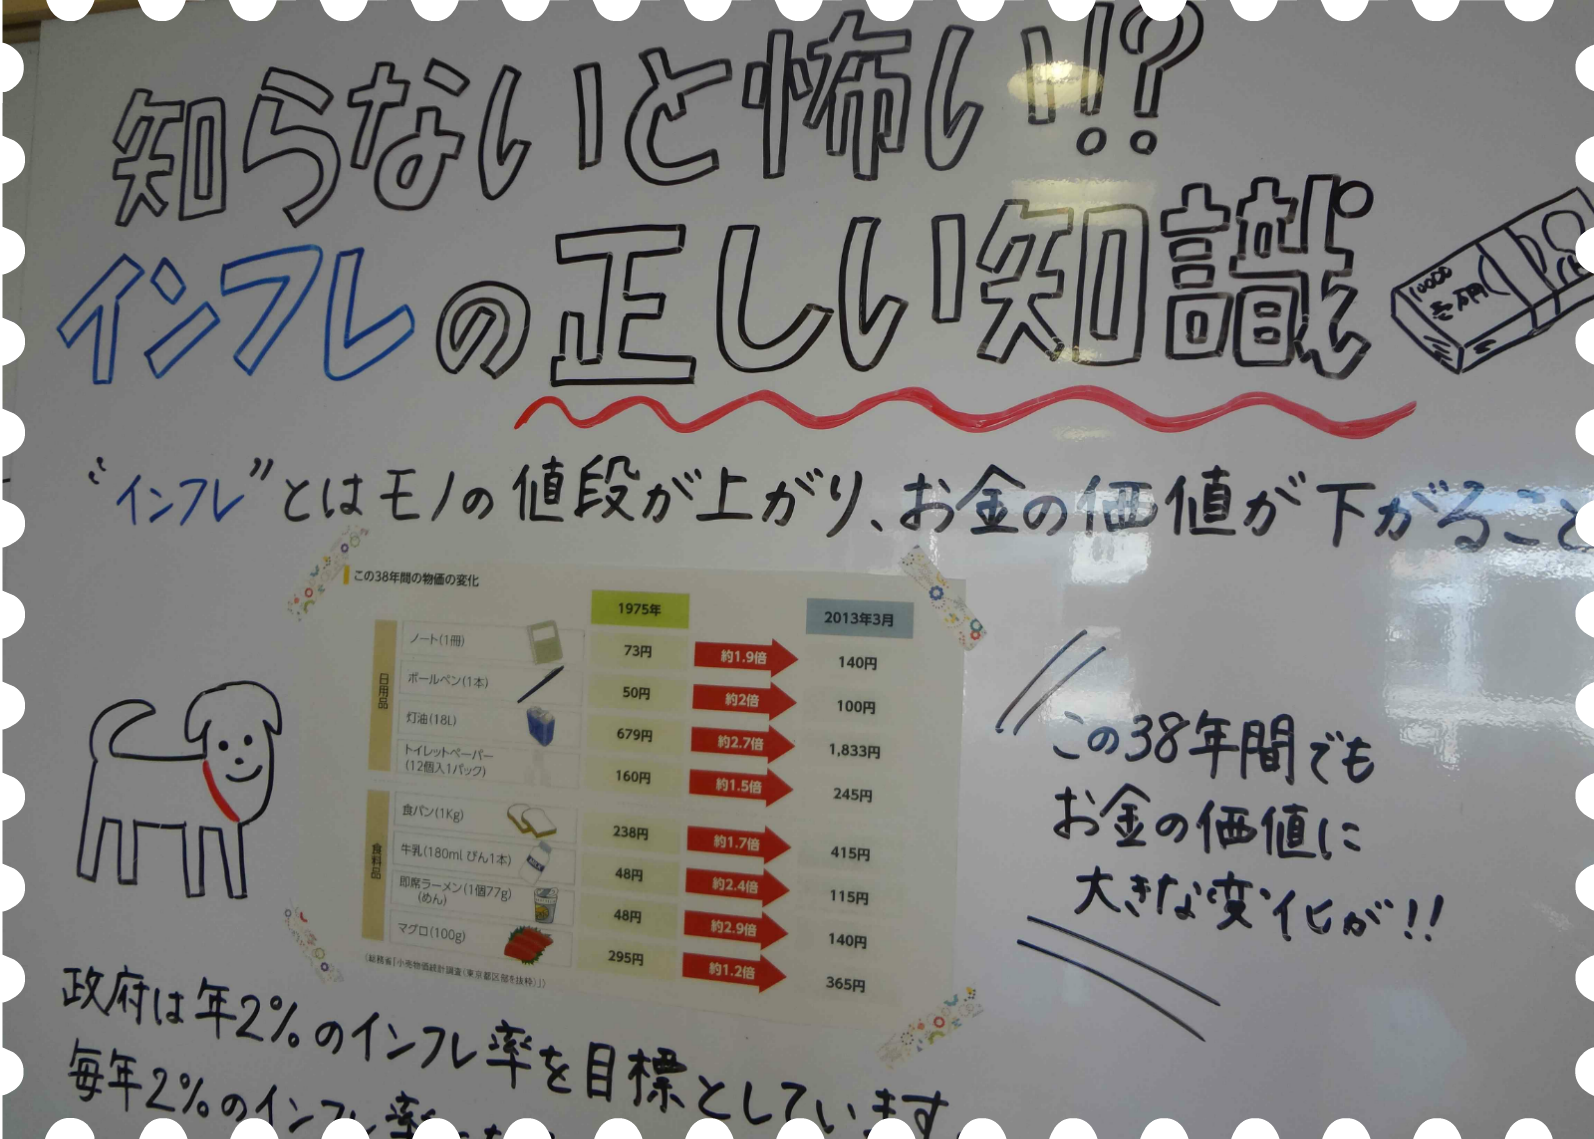 知らないと怖い!!?
インフレの正しい知識
10000
壱万円
“インフレ”とはモノの値段が上がり、お金の価値が下がること
この38年間の物価の変化
1975年 2013年3月
日用品
ノート(1冊) 73円 約1.9倍 140円
ボールペン(1本) 50円 約2倍 100円
灯油(18L) 679円 約2.7倍 1,833円
トイレットペーパー
(12個入1パック) 160円 約1.5倍 245円
食料品
食パン(1Kg) 238円 約1.7倍 415円
牛乳(180ml びん1本) 48円 約2.4倍 115円
MILK
即席ラーメン(1個77g)
(めん) 48円 約2.9倍 140円
マグロ(100g) 295円 約1.2倍 365円
(総務省「小売物価統計調査(東京都区部を抜粋)」)
この38年間でも
お金の価値に
大きな変化が!!
政府は年2%のインフレ率を目標としています。
毎年2%のインフレ率